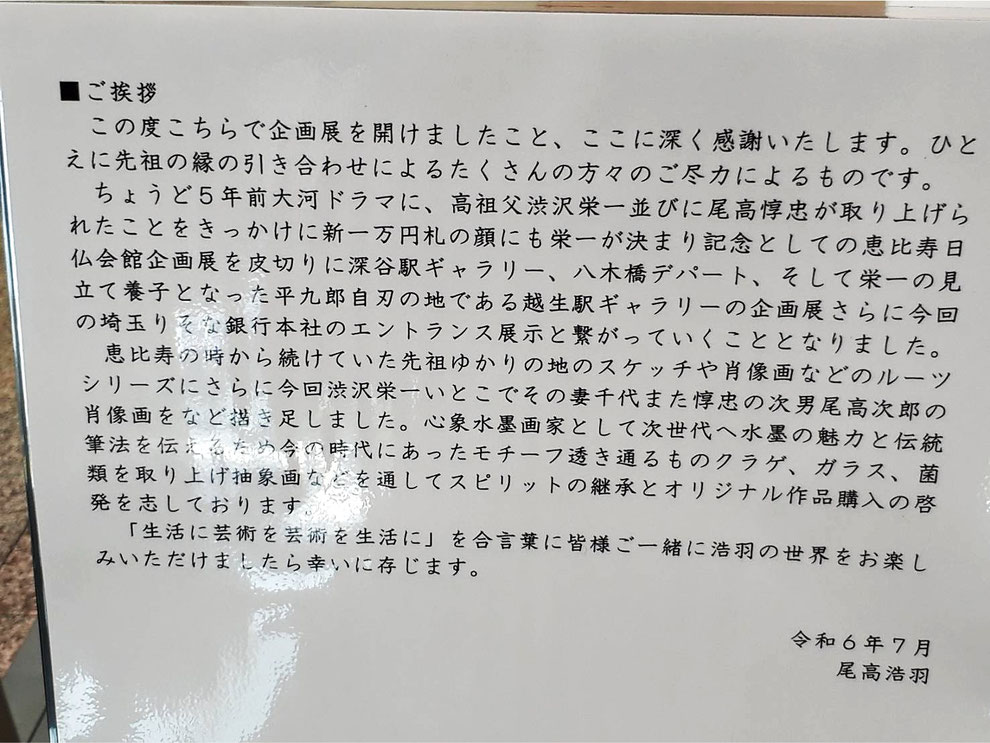 ■ご挨拶
この度こちらで企画展を開けましたこと、ここに深く感謝いたします。ひと
えに先祖の縁の引き合わせによるたくさんの方々のご尽力によるものです。
ちょうど5年前大河ドラマに、高祖父渋沢栄一並びに尾高惇忠が取り上げら
れたことをきっかけに新一万円札の顔にも栄一が決まり記念としての恵比寿日
仏会館企画展を皮切りに深谷駅ギャラリー、八木橋デパート、そして栄一の見
立て養子となった平九郎自刃の地である越生駅ギャラリーの企画展さらに今回
の埼玉りそな銀行本社のエントランス展示と繋がっていくこととなりました。
恵比寿の時から続けていた先祖ゆかりの地のスケッチや肖像画などのルーツ
シリーズにさらに今回渋沢栄一いとこでその妻千代また惇忠の次男尾高次郎の
肖像画をなど描き足しました。心象水墨画家として次世代へ水墨の魅力と伝統
筆法を伝えるため今の時代にあったモチーフ透き通るものクラゲ、ガラス、菌
類を取り上げ抽象画などを通してスピリットの継承とオリジナル作品購入の啓
発を志しております。
「生活に芸術を芸術を生活に」を合言葉に皆様ご一緒に浩羽の世界をお楽し
みいただけましたら幸いに存じます。
令和6年7月
尾高浩羽